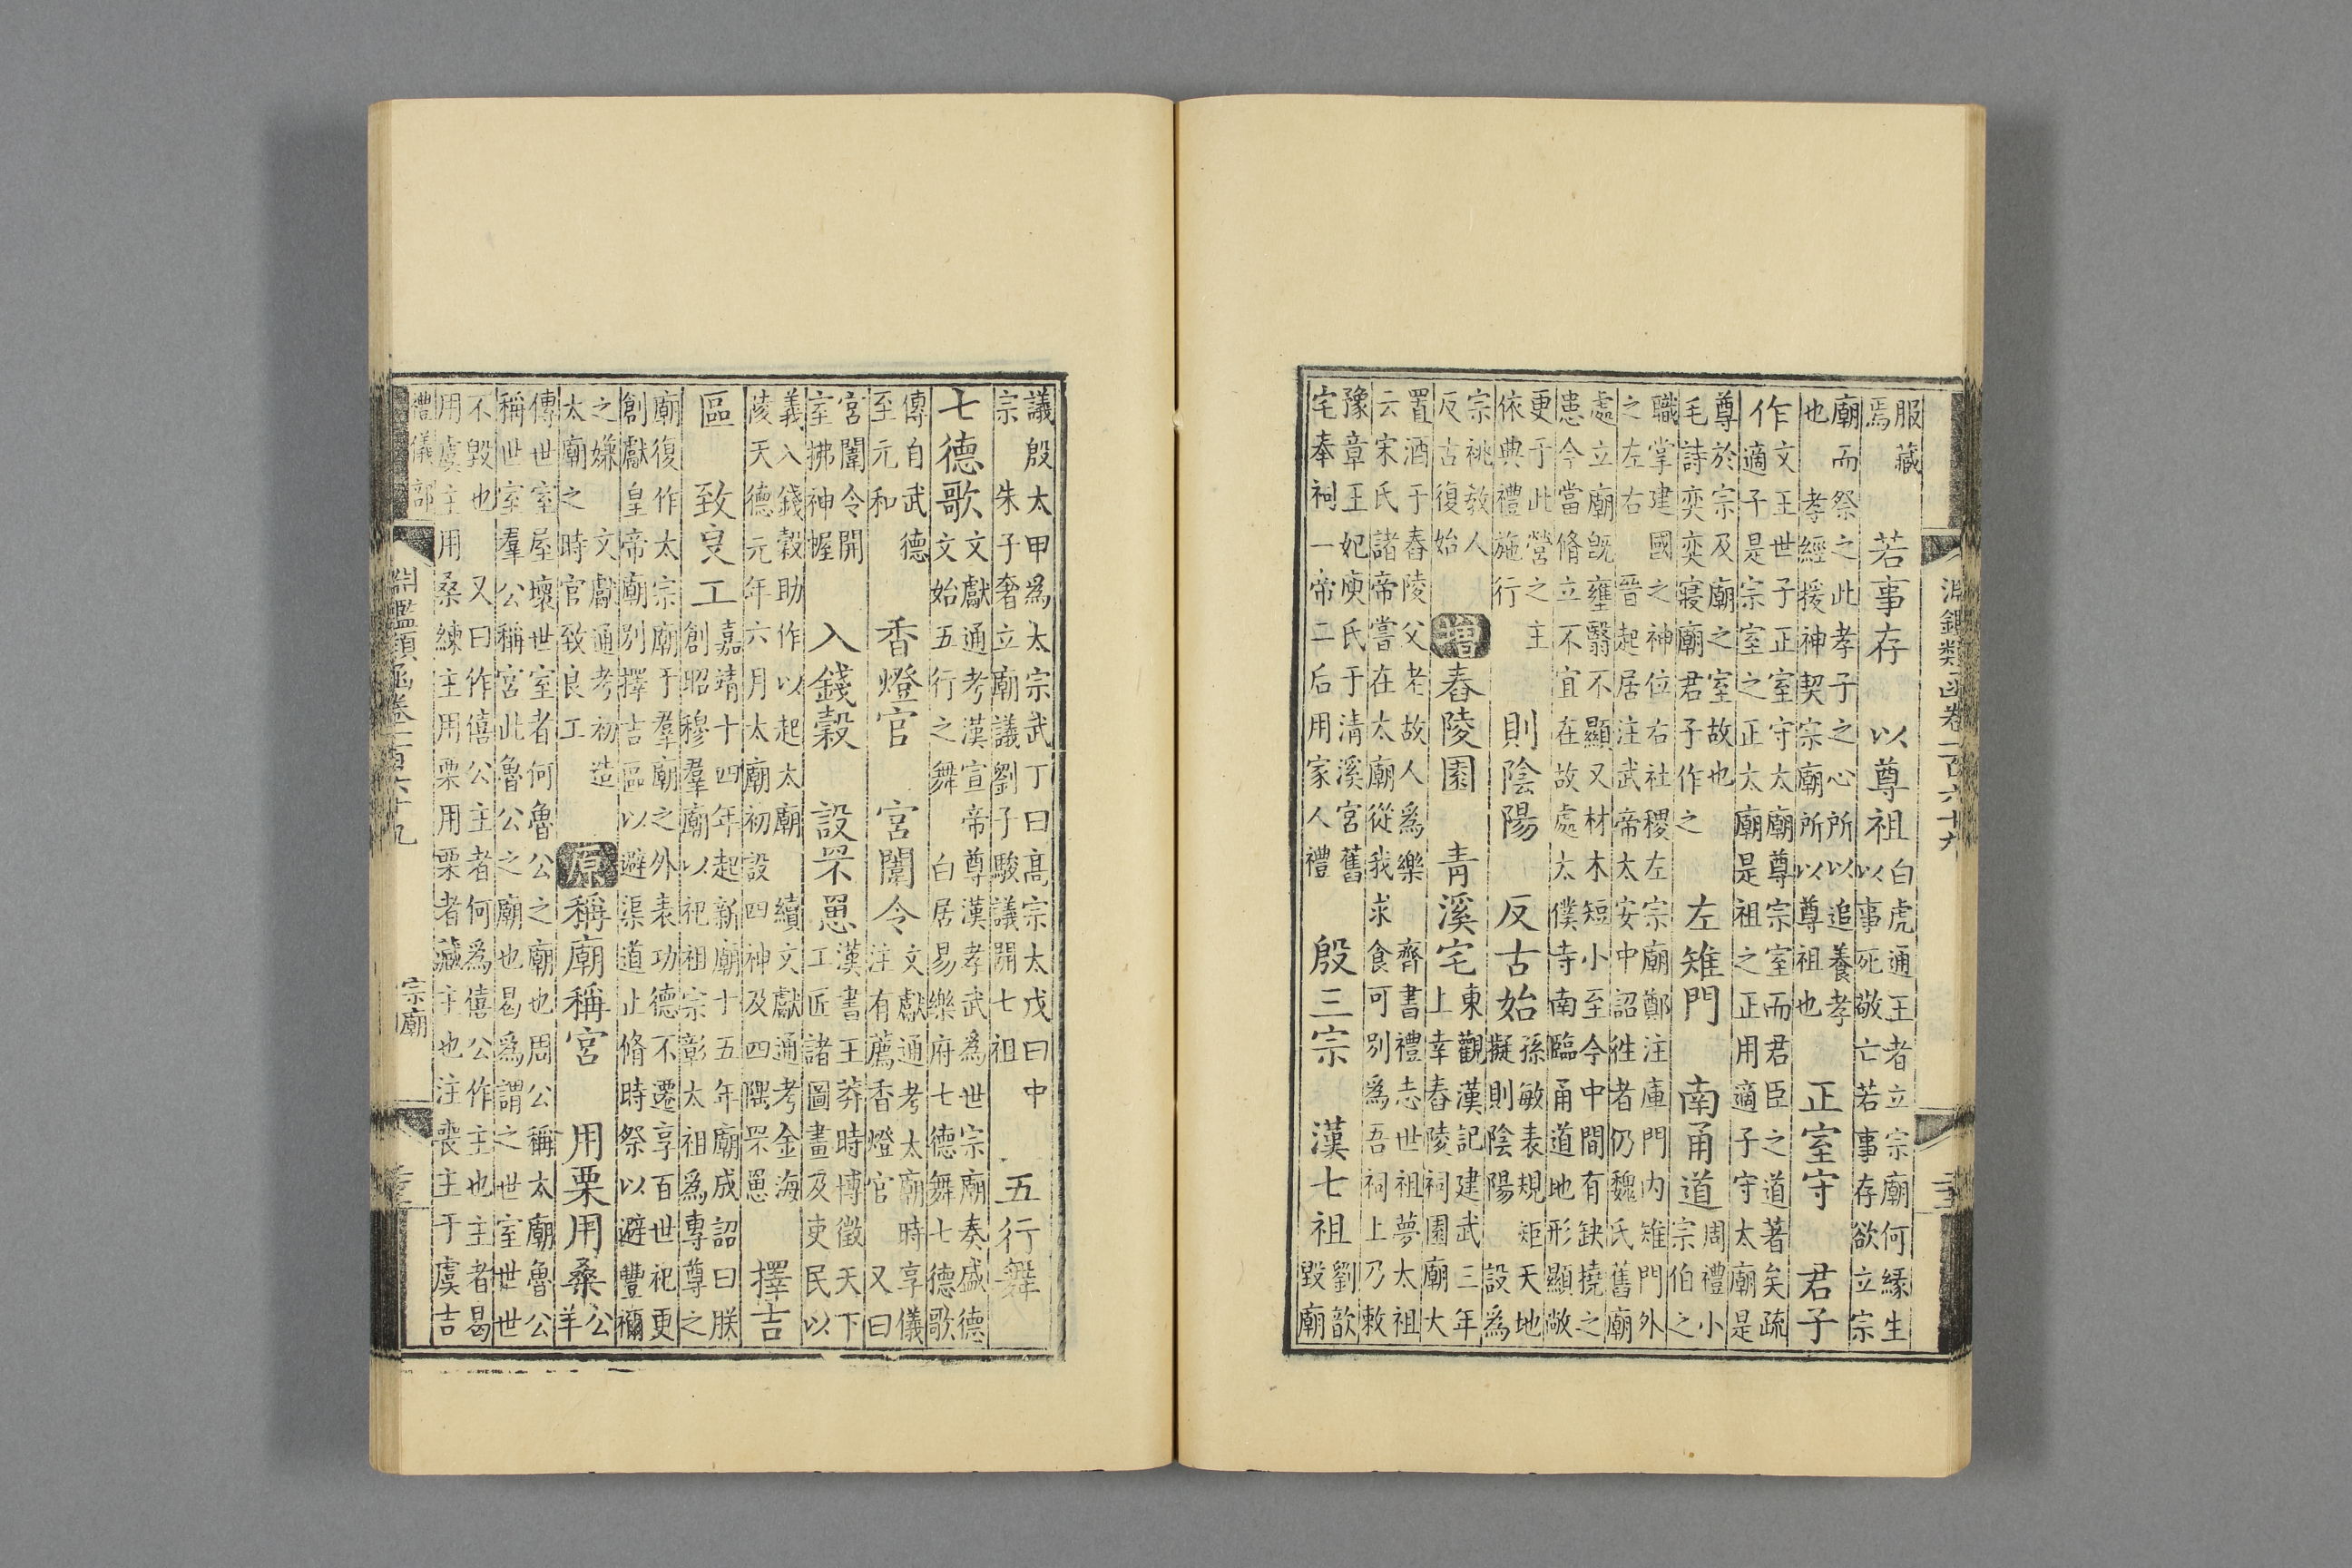 服藏
焉
若事存
以尊祖
白虎通王者立宗廟何緣生
以事死敬亡若事存欲立宗
廟而祭之此孝子之心所以追養孝
也 孝經援神契宗廟所以尊祖也
正室守
君子
作文王世子正室守太廟尊宗室而君臣之道著矣疏
適子是宗室之正太廟是祖之正用適子守太廟是
尊於宗及廟之室故也
毛詩奕奕寢廟君子作之
左雉門
南甬道
周禮小
宗伯之
職掌建國之神位右社稷左宗廟鄭注庫門内雉門外
之左右 晉起居注武帝太安中詔往者仍魏氏舊廟
處立廟既壅翳不顯又材木短小至今中間有缺撓之
患今當脩立不宜在故處太僕寺南臨甬道地形顯敞
更于此營之主
依典禮施行
則陰陽
反古始
孫敏表規矩天地
擬則陰陽 設為
宗祧教人
反古復始
增
舂陵園
青溪宅
東觀漢記建武三年
上幸舂陵祠園廟大
置酒于舂陵父老故人為樂 齊書禮志世祖夢太祖
云宋氏諸帝嘗在太廟從我求食可別為吾祠上乃敕
豫章王妃庾氏于清溪宮舊
宅奉祠一帝二后用家人禮
殷三宗
漢七祖
劉歆
毀廟
淵鑑類函卷一百六十九
議殷太甲為太宗武丁曰高宗太戊曰中
宗 朱子奢立廟議劉子駿議開七祖
五行舞
七德歌
文獻通考漢宣帝尊漢孝武為世宗廟奏盛德
文始五行之舞 白居易樂府七德舞七德歌
傳自武德
至元和
香燈官
宮闈令
文獻通考太廟時享儀
注有薦香燈官 又曰
宮闈令開
室拂神幄
入錢穀
設罘罳
漢書王莽時博徵天下
工匠諸圖畫及吏民以
義入錢穀助作以起太廟 續文獻通考金海
陵天德元年六月太廟初設四神及四隅罘罳
擇吉
區
致良工
嘉靖十四年起新廟十五年廟成詔曰朕
創昭穆羣廟以祀祖宗彰太祖為專尊之
廟復作太宗廟于羣廟之外表功德不遷享百世祀更
創獻皇帝廟別擇吉區以避渠道止脩時祭以避豐禰
之嫌 文獻通考初造
太廟之時官致良工
原
稱廟稱宮
用栗用桑
公
羊
傳世室屋壞世室者何魯公之廟也周公稱太廟魯公
稱世室羣公稱宮此魯公之廟也曷為謂之世室世世
不毀也 又曰作僖公主者何為僖公作主也主者曷
用虞主用桑練主用栗用栗者藏主也注喪主于虞吉
禮儀部
淵鑑類函卷一百六十九
宗廟